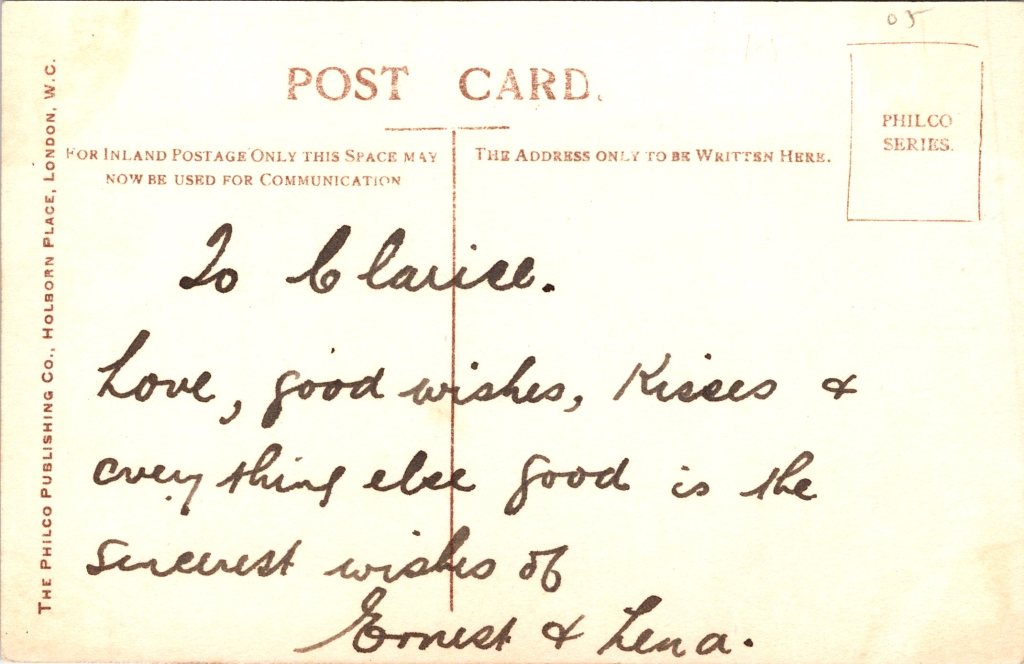 05
POST CARD.
PHILCO
SERIES.
FOR INLAND POSTAGE ONLY THIS SPACE MAY
NOW BE USED FOR COMMUNICATION
THE ADDRESS ONLY TO BE WRITTEN HERE.
THE PHILCO PUBLISHING CO., HOLBORN PLACE, LONDON, W.C.
To Clarice.
Love, good wishes, Kisses &
everything else good is the
sincerest wishes of
Ernest & Lena.